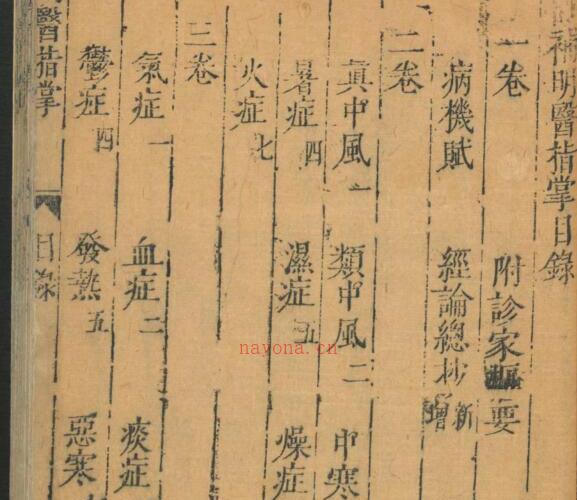 補明醫指掌目錄
一卷 附診家樞要
病機賦 經論總抄 新增
二卷
真中風 一 類中風 二 中寒
暑症 四 濕症 五 燥症
火症 七
三卷
氣症 一 血症 二 痰症
鬱症 四 發熱 五 惡寒
醫指掌 目錄
nayona.cn